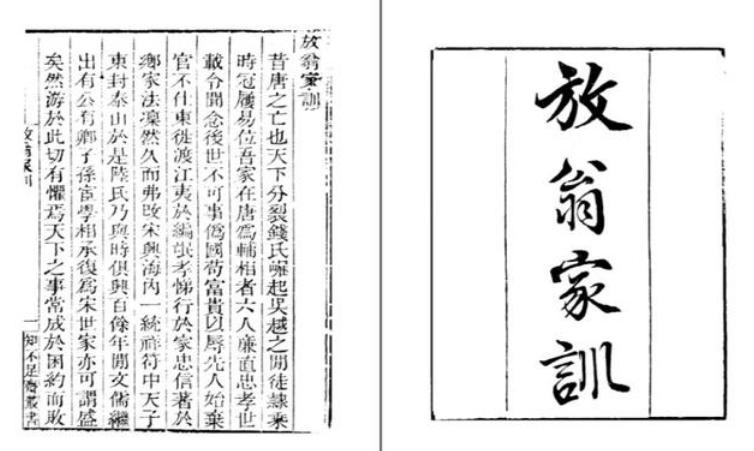 放翁家訓
放翁家訓
昔唐之亡也天下分裂錢氏崛起吳越之間徒隸乘
時冠屨易位吾家在唐爲輔相者六人廉直忠孝世
載令聞念後世不可事僞國苟富貴以辱先人始棄
官不仕東徙渡江夷於編氓孝悌行於家忠信著於
鄉家法凜然久而弗改宋興海內一統祥符中天子
東封泰山於是陸氏乃與時俱興百餘年間文儒繼
出有公有卿子孫宦學相承復爲宋世家亦可謂盛
矣然游於此切有懼焉天下之事常成於困約而敗
放翁家訓
一
知不足齋叢書